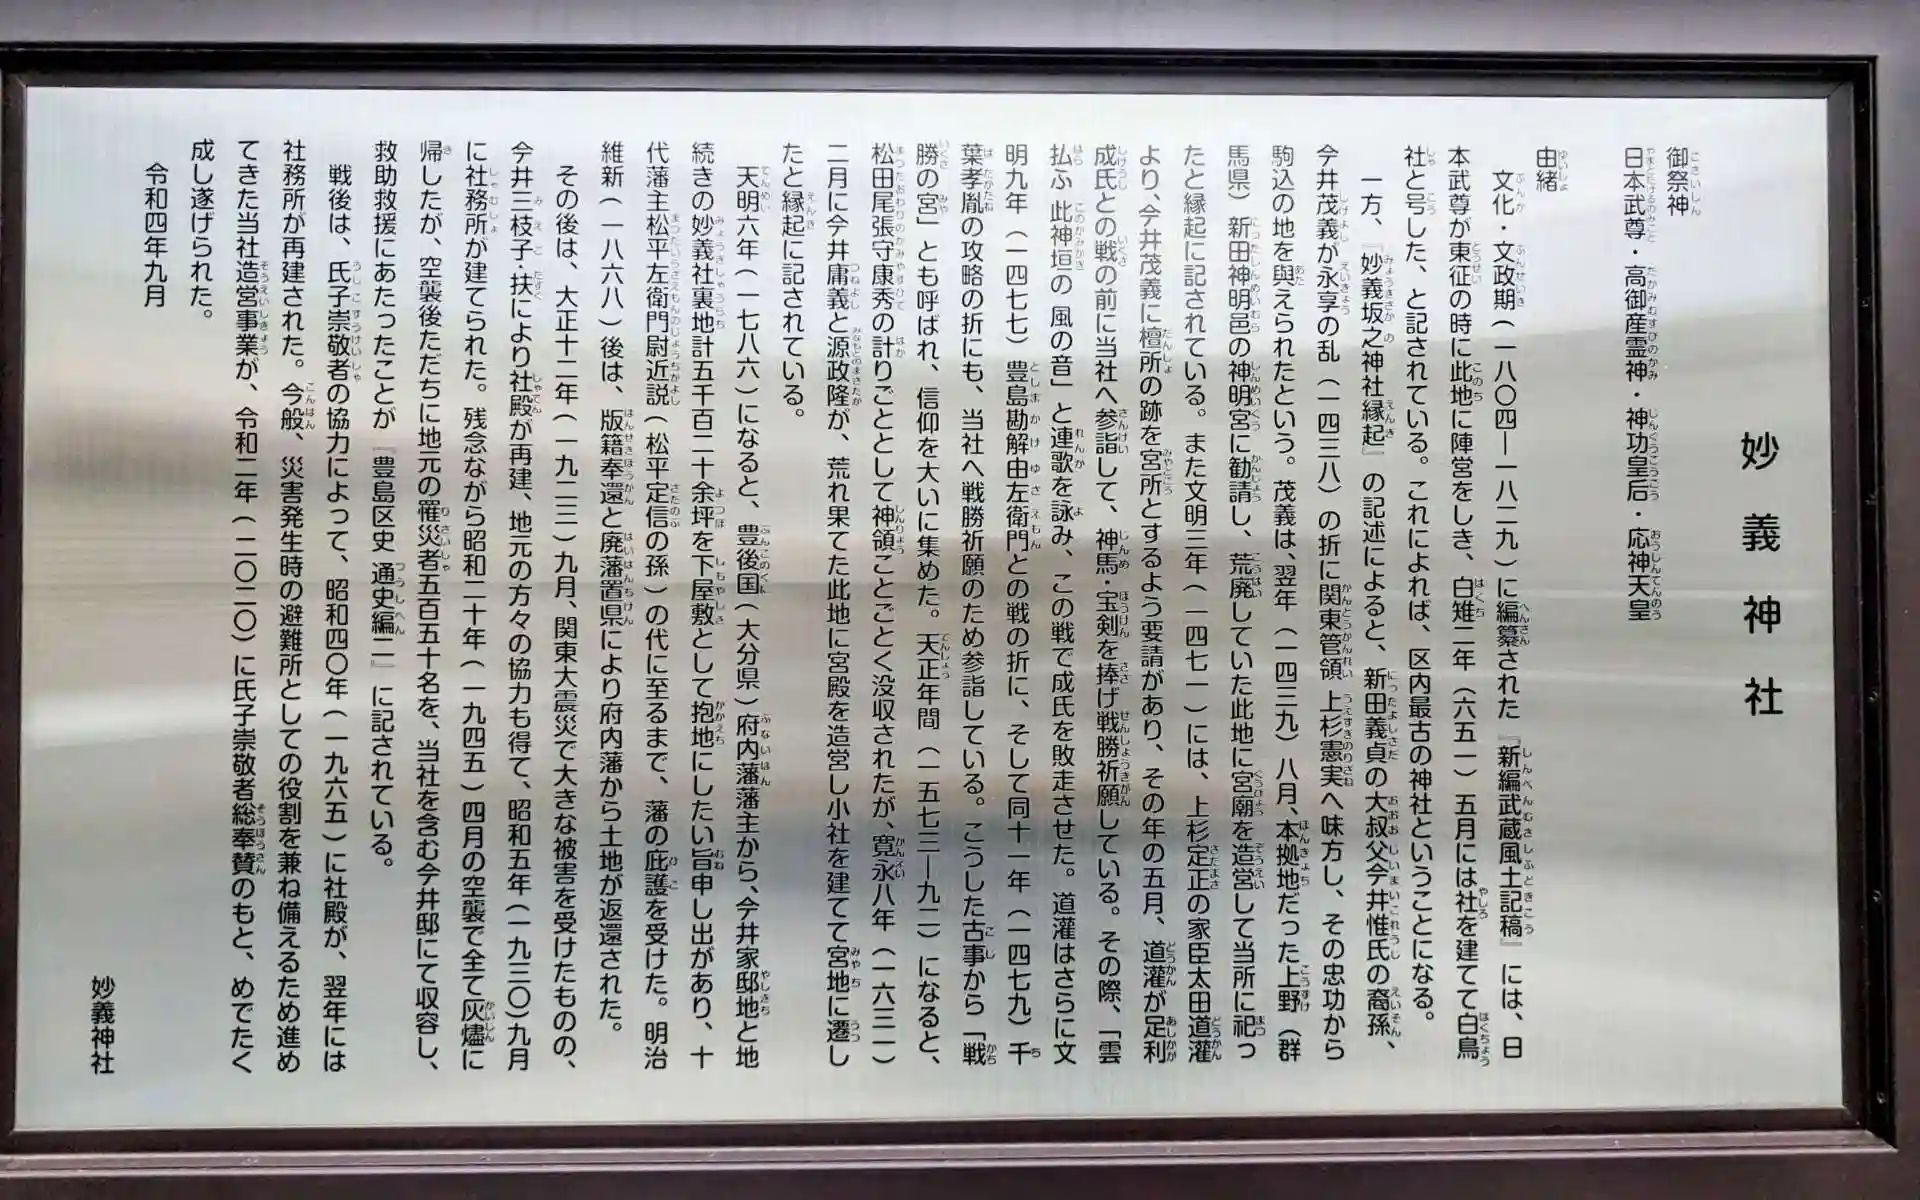 妙義神社
御祭神
日本武尊・高御産霊神・神功皇后・応神天皇
由緒
文化・文政期(一八〇四―一八二九)に編纂された『新編武蔵風土記稿』には、日
本武尊が東征の時に此地に陣営をしき、白雉二年(六五一)五月には社を建てて白鳥
社と号した、と記されている。これによれば、区内最古の神社ということになる。
一方、『妙義坂之神社縁起』の記述によると、新田義貞の大叔父今井惟氏の裔孫、
今井茂義が永享の乱(一四三八)の折に関東管領 上杉憲実へ味方し、その忠功から
駒込の地を与えられたという。茂義は、翌年(一四三九)八月、本拠地だった上野(群
馬県)新田神明邑の神明宮に勧請し、荒廃していた此地に宮廟を造営して当所に祀っ
たと縁起に記されている。また文明三年(一四七一)には、上杉定正の家臣太田道灌
より、今井茂義に檀所の跡を宮所とするよう要請があり、その年の五月、道灌が足利
成氏との戦の前に当社へ参詣して、神馬・宝剣を捧げ戦勝祈願している。その際、「雲
払ふ 此神垣の 風の音」と連歌を詠み、この戦で成氏を敗走させた。道灌はさらに文
明九年(一四七七)豊島勘解由左衛門との戦の折に、そして同十一年(一四七九)千
葉孝胤の攻略の折にも、当社へ戦勝祈願のため参詣している。こうした古事から「戦
勝の宮」とも呼ばれ、信仰を大いに集めた。天正年間(一五七三―九二)になると、
松田尾張守康秀の計りごととして神領ことごとく没収されたが、寛永八年(一六三一)
二月に今井庸義と源政隆が、荒れ果てた此地に宮殿を造営し小社を建てて宮地に遷し
たと縁起に記されている。
天明六年(一七八六)になると、豊後国(大分県)府内藩藩主から、今井家邸地と地
続きの妙義社裏地計五千百二十余坪を下屋敷として抱地にしたい旨申し出があり、十
代藩主松平左衛門尉近説(松平定信の孫)の代に至るまで、藩の庇護を受けた。明治
維新(一八六八)後は、版籍奉還と廃藩置県により府内藩から土地が返還された。
その後は、大正十二年(一九二三)九月、関東大震災で大きな被害を受けたものの、
今井三枝子・扶により社殿が再建、地元の方々の協力も得て、昭和五年(一九三〇)九月
に社務所が建てられた。残念ながら昭和二十年(一九四五)四月の空襲で全て灰燼に
帰したが、空襲後ただちに地元の罹災者五百五十名を、当社を含む今井邸にて収容し、
救助救援にあたったことが『豊島区史 通史編二』に記されている。
戦後は、氏子崇敬者の協力によって、昭和四〇年(一九六五)に社殿が、翌年には
社務所が再建された。今般、災害発生時の避難所としての役割を兼ね備えるため進め
てきた当社造営事業が、令和二年(二〇二〇)に氏子崇敬者総奉賛のもと、めでたく
成し遂げられた。
令和四年九月
妙義神社